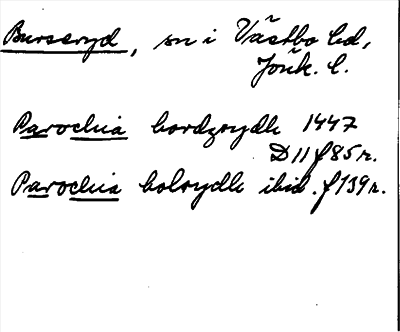 Burseryd, sn i Västbo hd,
Jönk. l.
Parochia bordzrydh 1447
D 11 f 85 r.
Parochia bolsrydh ibid. f 139 r.